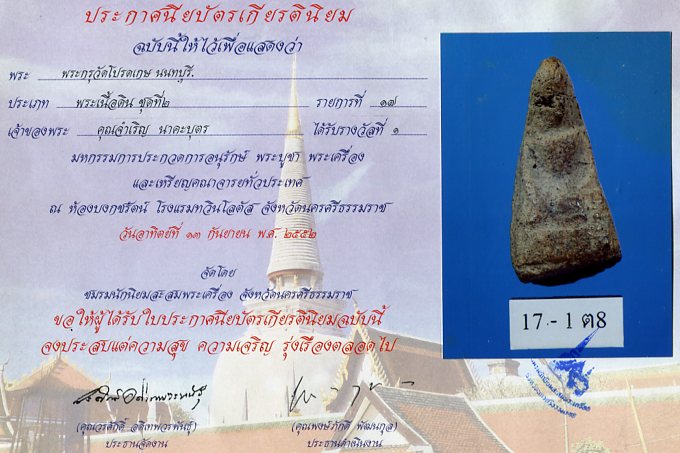 ประกาศนียบัตรเกียรตินิยม
ฉบับนี้ให้ไว้เพื่อแสดงว่า
พระ พระกรุวัดโปรดเกษ นนทบุรี.
ประเภท พระเนื้อดิน ชุดที่๒ รายการที่ ๑๗
เจ้าของพระ คุณจำเริญ นาคะบุตร ได้รับรางวัลที่ ๑
มหกรรมการประกวดการอนุรักษ์ พระบูชา พระเครื่อง
และเหรียญคณาจารย์ทั่วประเทศ
ณ ห้องบงกชรัตน์ โรงแรมทวินโลตัส จังหวัดนครศรีธรรมราช
วันอาทิตย์ที่ ๑๓ กันยายน พ.ศ. ๒๕๕๒
จัดโดย
ชมรมนักนิยมสะสมพระเครื่อง จังหวัดนครศรีธรรมราช
ขอให้ผู้ได้รับใบประกาศนียบัตรเกียรตินิยมฉบับนี้
จงประสบแต่ความสุข ความเจริญ รุ่งเรืองตลอดไป
(คุณวรศักดิ์ อดิเทพวรพันธุ์)
ประธานจัดงาน
(คุณพงษ์ภักดิ์ พัฒนกุล)
ประธานดำเนินงาน
17 - 1 ต8